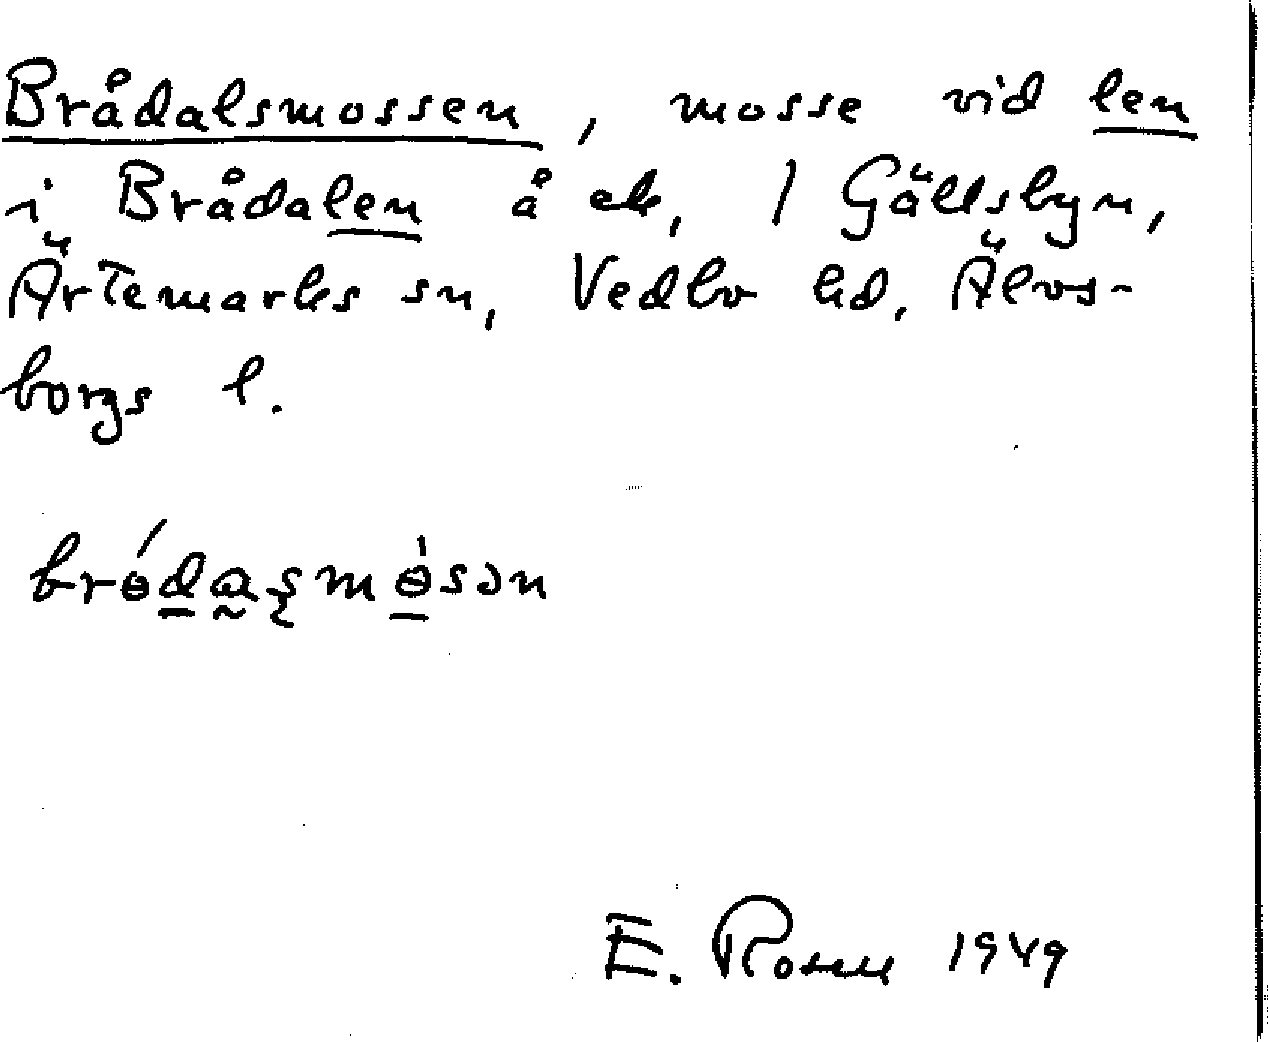 Brådalsmossen, mosse vid len
i Brådalen å ek, / Gällsbyn,
Ärtemarks sn, Vedbo hd, Älvs-
borgs l.
E. Rosell 1949